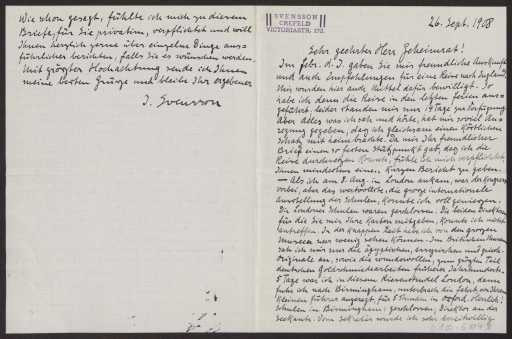 Wie schon gesagt, fühlte ich mich zu diesem
Briefe, für Sie privatim, verpflichtet und will
Ihnen herzlich gerne über einzelne Dinge aus-
führlicher berichten, falls Sie es wünschen werden.
Mit größter Hochachtung sende ich Ihnen
meine besten Grüße und bleibe Ihr ergebener
J. Svensson
SVENSSON
CREFELD
VICTORIASTR. 172.
26. Sept. 1908
Sehr geehrter Herr Geheimrat!
Im Febr. d. J. gaben Sie mir freundliche Auskunft
und auch Empfehlungen für eine Reise nach England.
Mir wurden hier auch Mittel dafür bewilligt. So
habe ich denn die Reise in den letzten Ferien aus-
geführt, leider standen mir nur 19 Tage zur Verfügung.
Aber alles was ich sah und hörte, hat mir soviel An-
regung gegeben, daß ich gleichsam einen köstlichen
Schatz mit heim brachte. Da mir Ihr freundlicher
Brief einen so festen Stützpunkt gab, daß ich die
Reise durchsetzen konnte, fühle ich mich verpflichtet,
Ihnen mindestens einen kurzen Bericht zu geben.
— Als ich am 8. Aug. in London ankam, war der Kongress
vorbei, aber das wertvollste, die große internationale
Ausstellung der Schulen, konnte ich voll genießen.
Die Londoner Schulen waren geschlossen. Die beiden Direktoren
für die Sie mir Karten mitgaben, konnte ich nicht
antreffen. In der knappen Zeit habe ich von den großen
Museen nur wenig sehen können. Im Britischen Museum
sah ich mir nur die ägyptischen, assyrischen und griech.
Originale an, sowie die wundervollen, zum größten Teil
deutschen Goldschmiedearbeiten früherer Jahrhunderte.
5 Tage war ich in diesem Riesenstrudel London, dann
fuhr ich nach Birmingham, unterbrach die Fahrt von Ihrem
kleinen Führer angeregt, für 5 Stunden in Oxford. Herrlich!
Schulen in Birmingham: geschlossen, Direktor an der
Seeküste. Vom Sekretär wurde ich sehr